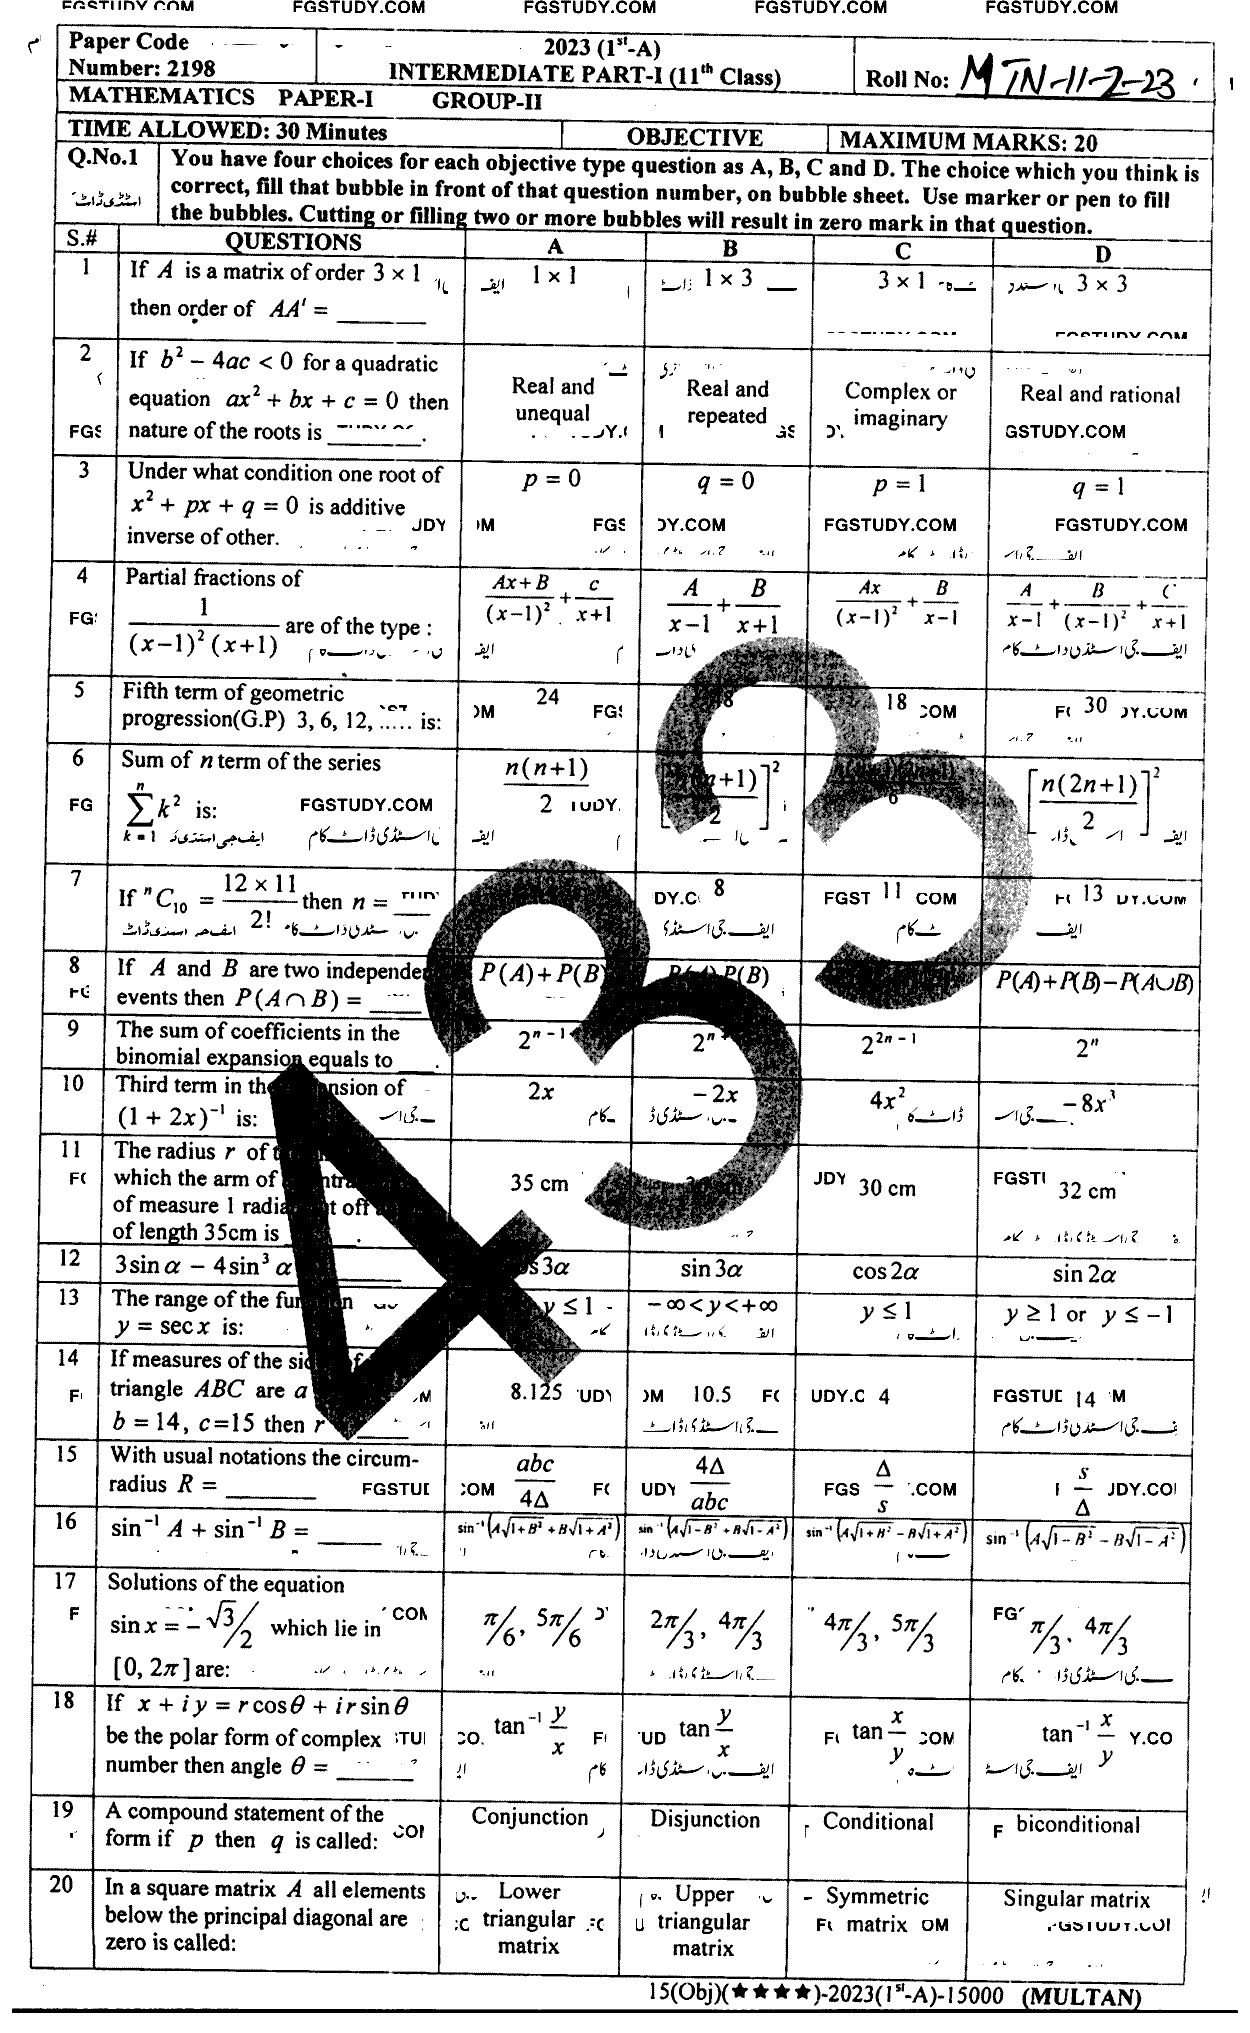 FGSTUDY.COM FGSTUDY.COM FGSTUDY.COM FGSTUDY.COM FGSTUDY.COM
Paper Code
Number: 2198
2023 (1st-A)
INTERMEDIATE PART-I (11th Class)
Roll No: MTN-11-2-23
MATHEMATICS PAPER-I GROUP-II
TIME ALLOWED: 30 Minutes OBJECTIVE MAXIMUM MARKS: 20
Q.No.1 You have four choices for each objective type question as A, B, C and D. The choice which you think is
correct, fill that bubble in front of that question number, on bubble sheet. Use marker or pen to fill
the bubbles. Cutting or filling two or more bubbles will result in zero mark in that question.
S.# QUESTIONS A B C D
1 If A is a matrix of order 3 × 1 1 × 1 1 × 3 3 × 1 3 × 3
then order of AA′ = ______
2 If b² − 4ac < 0 for a quadratic
equation ax² + bx + c = 0 then
nature of the roots is ______.
Real and
unequal
Real and
repeated
Complex or
imaginary
Real and rational
GSTUDY.COM
3 Under what condition one root of
x² + px + q = 0 is additive
inverse of other.
p = 0 q = 0 p = 1 q = 1
FGSTUDY.COM FGSTUDY.COM
4 Partial fractions of
1/((x−1)² (x+1)) are of the type :
(Ax+B)/(x−1)² + c/(x+1) A/(x−1) + B/(x+1) Ax/(x−1)² + B/(x−1) A/(x−1) + B/(x−1)² + C/(x+1)
ایف جی اسٹڈی ڈاٹ کام
5 Fifth term of geometric
progression(G.P) 3, 6, 12, ..... is:
24 18 30
6 Sum of n term of the series
∑ₖ₌₁ⁿ k² is:
FGSTUDY.COM
n(n+1)/2 [n(2n+1)/2]²
7 If ⁿC₁₀ = (12 × 11)/2! then n = ____
8 11 13
8 If A and B are two independe
events then P(A∩B) = ____
P(A)+P(B) P(A)+P(B)−P(A∪B)
9 The sum of coefficients in the
binomial expansion equals to ___.
2ⁿ⁻¹ 2ⁿ 2²ⁿ⁻¹ 2ⁿ
10 Third term in the nsion of
(1 + 2x)⁻¹ is:
2x −2x 4x² −8x³
11 The radius r of
which the arm of
of measure 1 radia t off
of length 35cm is ______.
35 cm 30 cm 32 cm
12 3sin α − 4sin³ α ______
os3α sin3α cos2α sin2α
13 The range of the fun
y = sec x is:
y ≤ 1 −∞<y<+∞ y ≤ 1 y ≥ 1 or y ≤ −1
14 If measures of the si of
triangle ABC are a
b = 14, c=15 then r ____
8.125 10.5 4 14
15 With usual notations the circum-
radius R = ______
abc/4Δ 4Δ/abc Δ/s s/Δ
16 sin⁻¹ A + sin⁻¹ B = ______
sin⁻¹(A√(1+B²) + B√(1+A²)) sin⁻¹(A√(1−B²) + B√(1−A²)) sin⁻¹(A√(1+B²) − B√(1+A²)) sin⁻¹(A√(1−B²) − B√(1−A²))
17 Solutions of the equation
sin x = −√3/2 which lie in
[0, 2π] are:
π/6, 5π/6 2π/3, 4π/3 4π/3, 5π/3 π/3, 4π/3
18 If x + iy = r cosθ + ir sinθ
be the polar form of complex
number then angle θ = ______
tan⁻¹ y/x tan y/x tan x/y tan⁻¹ x/y
19 A compound statement of the
form if p then q is called:
Conjunction Disjunction Conditional biconditional
20 In a square matrix A all elements
below the principal diagonal are
zero is called:
Lower
triangular
matrix
Upper
triangular
matrix
Symmetric
matrix
Singular matrix
15(Obj)(★★★★)-2023(1st-A)-15000 (MULTAN)